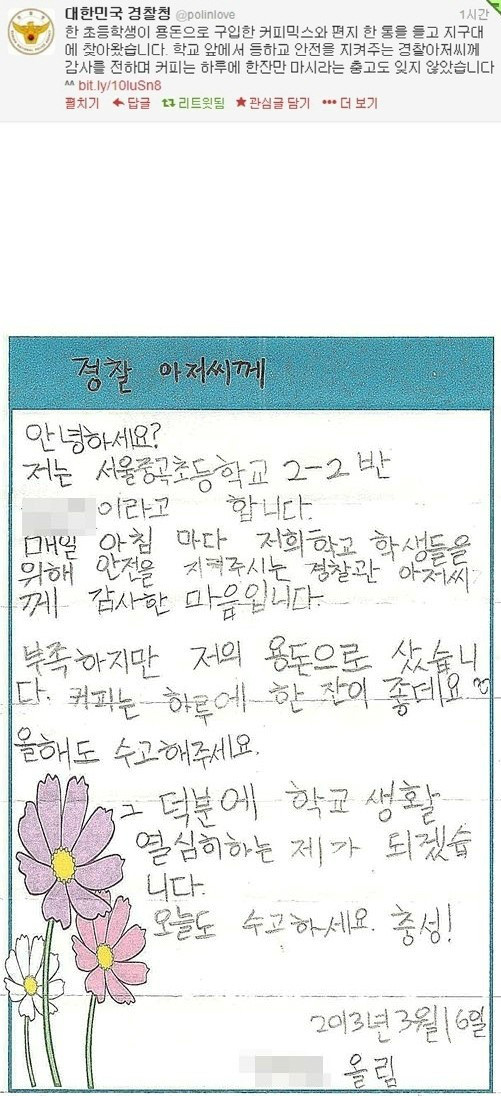 대한민국 경찰청 @polinlove 1시간
한 초등학생이 용돈으로 구입한 커피믹스와 편지 한 통을 들고 지구대
에 찾아왔습니다. 학교 앞에서 등하교 안전을 지켜주는 경찰아저씨께
감사를 전하며 커피는 하루에 한잔만 마시라는 충고도 잊지 않았습니다
^^ bit.ly/10luSn8
펼치기 답글 리트윗됨 관심글 담기 더 보기
경찰 아저씨께
안녕하세요?
저는 서울중곡초등학교 2-2 반
이라고 합니다.
매일 아침 마다 저희학교 학생들을
위해 안전을 지켜주시는 경찰관 아저씨
께 감사한 마음입니다.
부족하지만 저의 용돈으로 샀습니
다. 커피는 하루에 한 잔이 좋데요
올해도 수고해주세요.
그 덕분에 학교 생활
열심히하는 제가 되겠습
니다.
오늘도 수고하세요. 충성!
2013년 3월 16일
올림